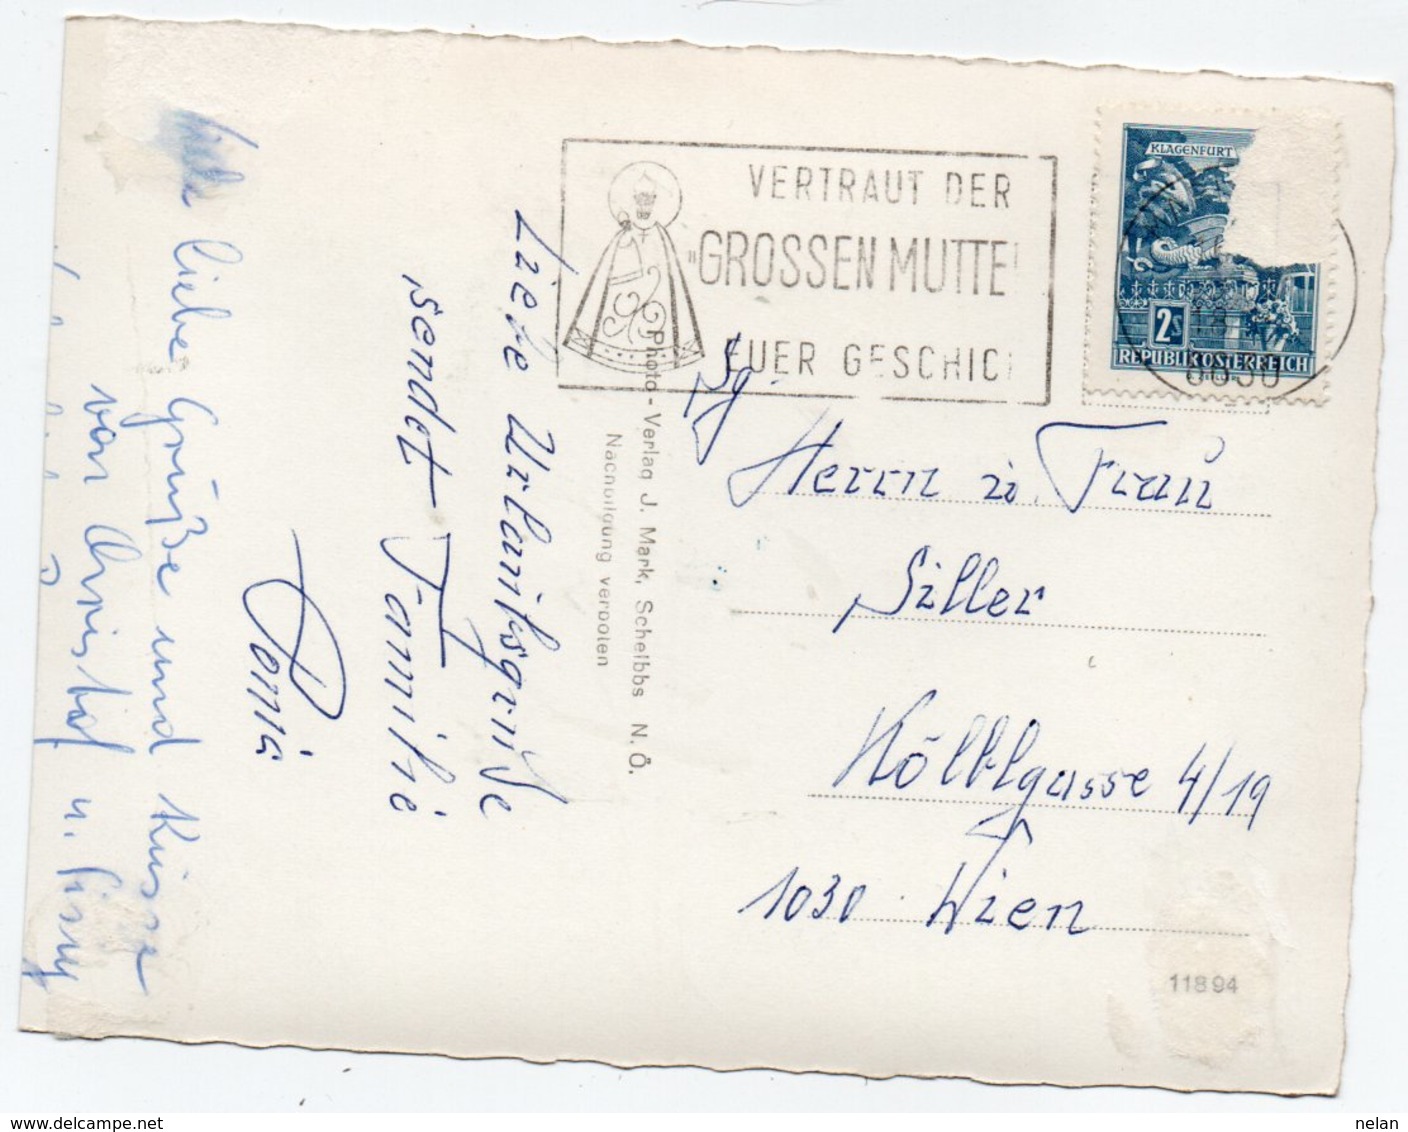 VERTRAUT DER
"GROSSEN MUTTE
EUER GESCHIC
KLAGENFURT
2s
REPUBLIK ÖSTERREICH
8630
Sg.
Herrn u. Frau
Siller
Kölblgasse 4/19
1030 Wien
11894
Photo-Verlag J. Mark, Scheibbs N.Ö.
Nachbildung verboten
Liebe Urlaubsgrüße
sendet Familie
liebe Grüße und Küsse
von Christof u. Sissy
www.delcampe.net
nelan